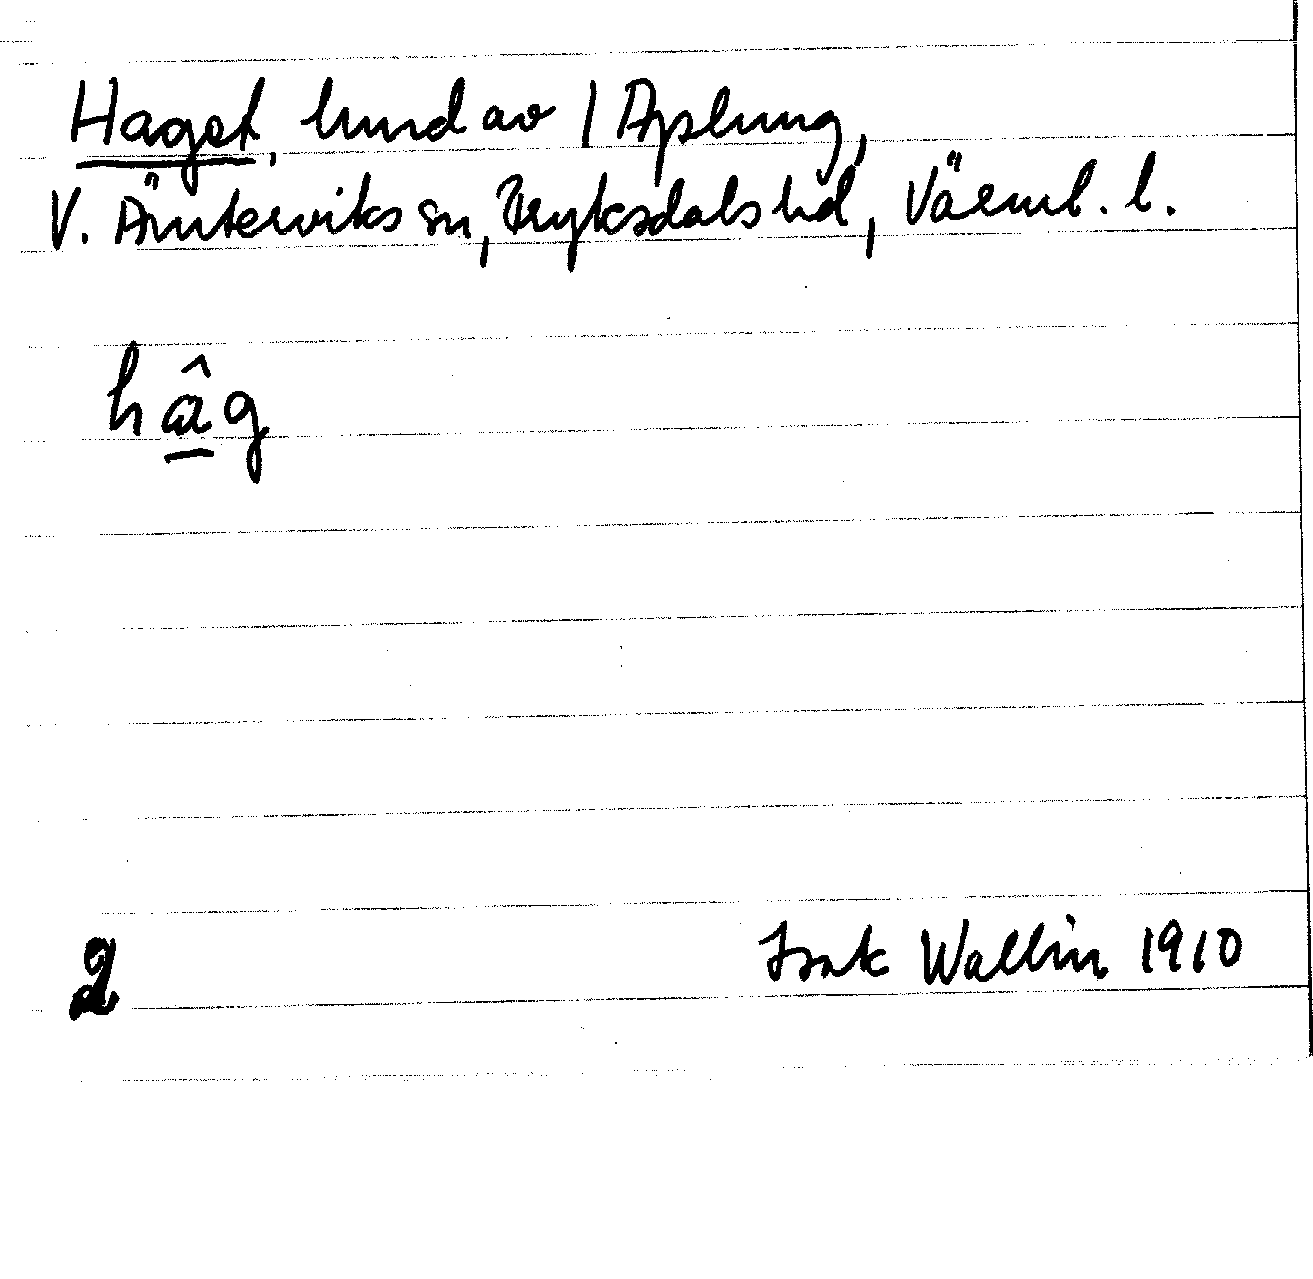 Haget, hmd av 1 Apelung,
V. Ämterviks sn, Fryksdals hd, Värml. l.
hâg
2
Isak Wallin 1910